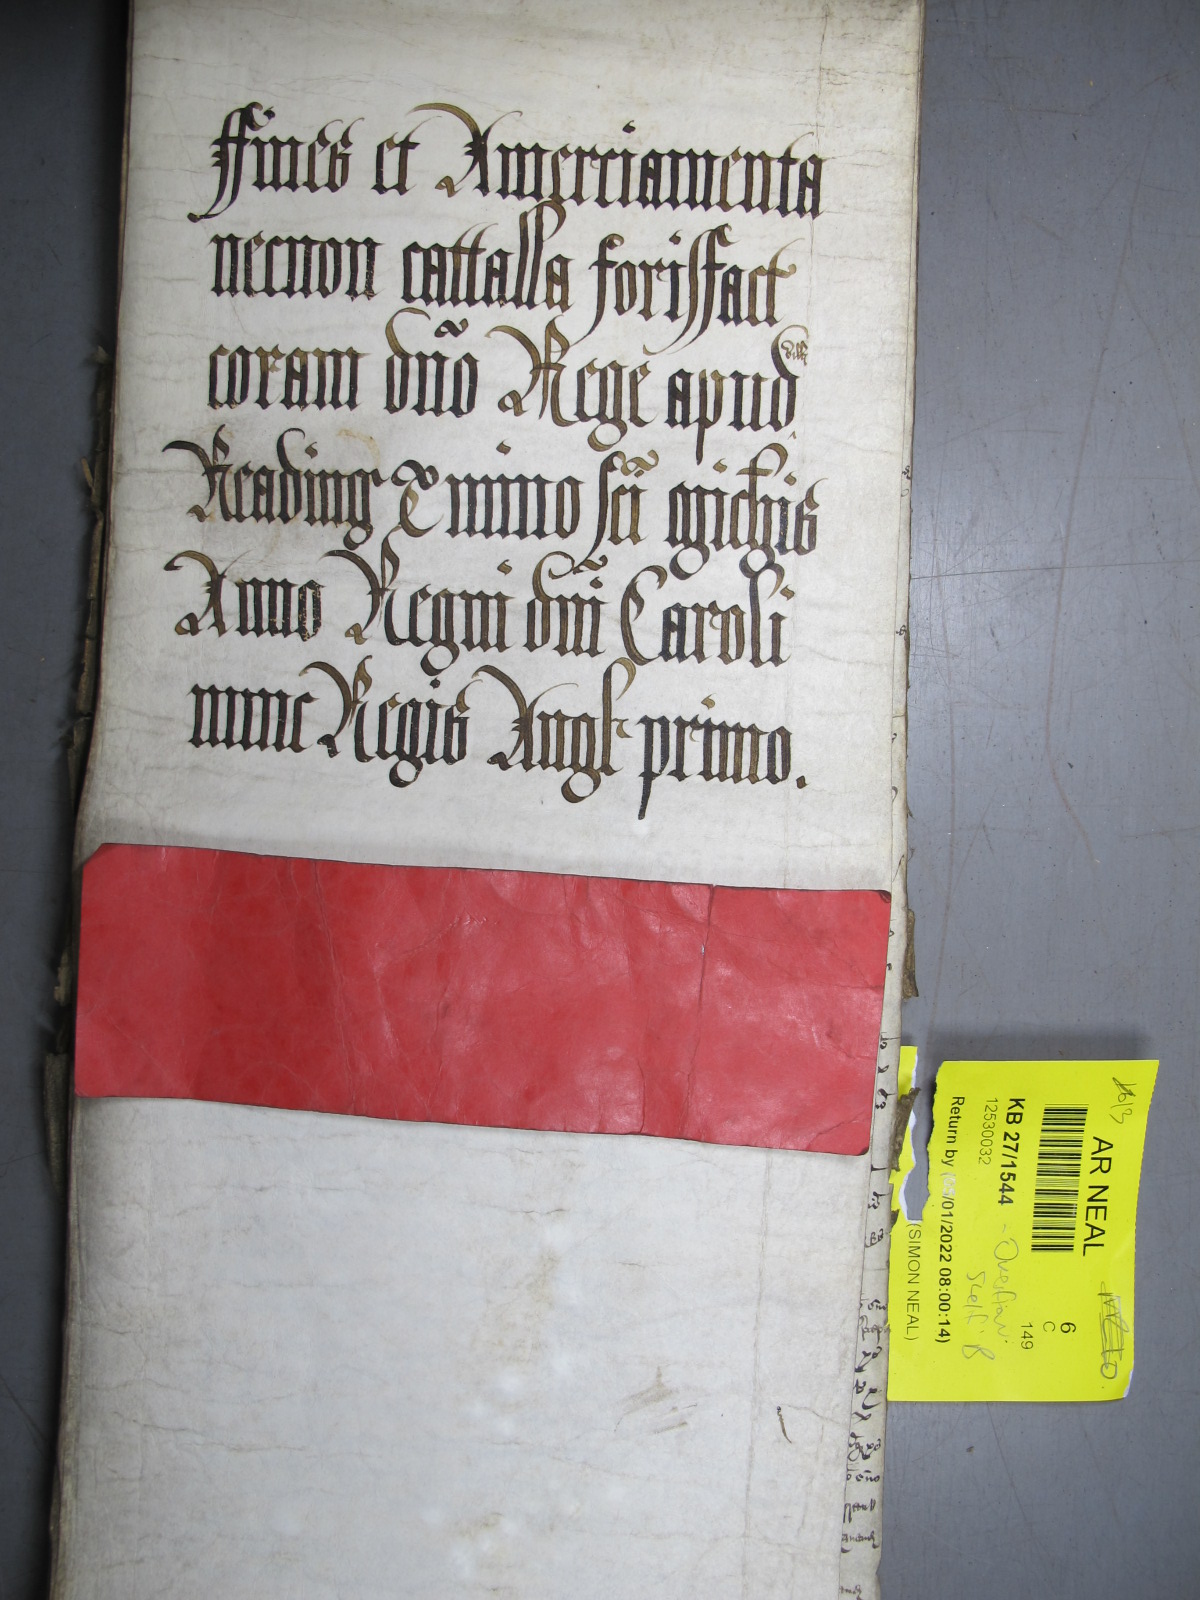 ffines et Amerciamenta
necnon cattalla forisfact
coram dño Rege apud
vill
Reading Tmino Sci Michis
Anno Regni dñi Caroli
nunc Regis Angl primo.
AR NEAL
KB 27/1544
12530032
Return by (05/01/2022 08:00:14)
(SIMON NEAL)
6
C
149
Overflow
Shelf B